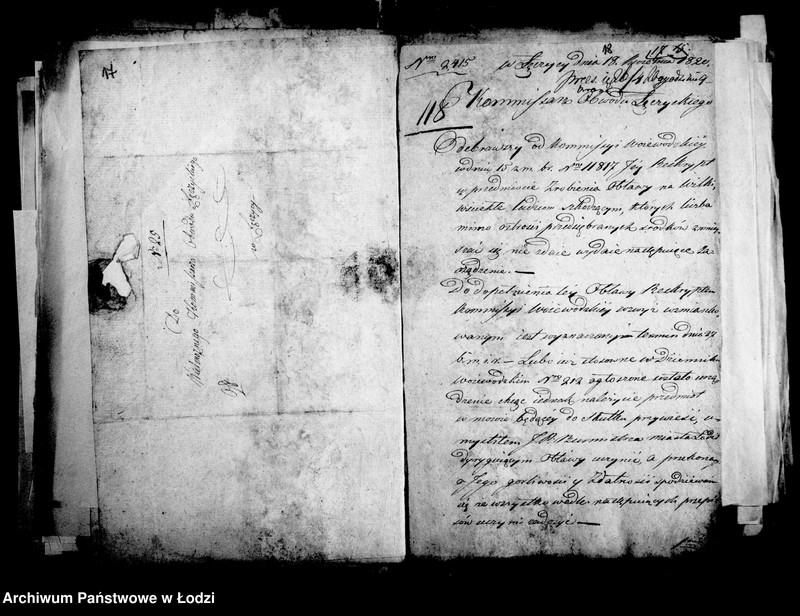 17
N: 25
Do
Wielmożnego Kommissarza Obwodu Łęczyckiego
w Łęczycy
Nro 2415 w Łęczycy dnia 18 1820
118 Kommissarz Obwodu Łęczyckiego
Odebrawszy od Kommissyi Woiewodzkiey
w dniu 15 z. m. br. Nro 11817 Jey Reskrypt
w przedmiocie zrobienia Obławy na Wilki
wściekłe ludziom szkodzącym, których liczba
mimo przedsięwziętych środków zmniey
szać się nie zdaie wydaie następuiące Za
rządzenie. —
Do dopełnienia tey Obławy Reskryptem
Kommissyi Woiewodzkiey wzwyż wzmianko
wanym iest wyznaczonym termin dnia 27
b. m. i r. — Lubo iuż stosowne w Dzienniku
Woiewodzkim Nro 212 ogłoszone zostało urzą
dzenie chcąc iednak należycie przedmiot
w mowie będący do skutku przywieść, u
myśliłem J. P. Burmistrza miasta
dyryguiącym Obławy uczynić, a przekona
o Jego gorliwości y zdatności spodziewam
się że wszystko wedle następuiących przepi
sów uczyni zadosyć —
Archiwum Państwowe w Łodzi